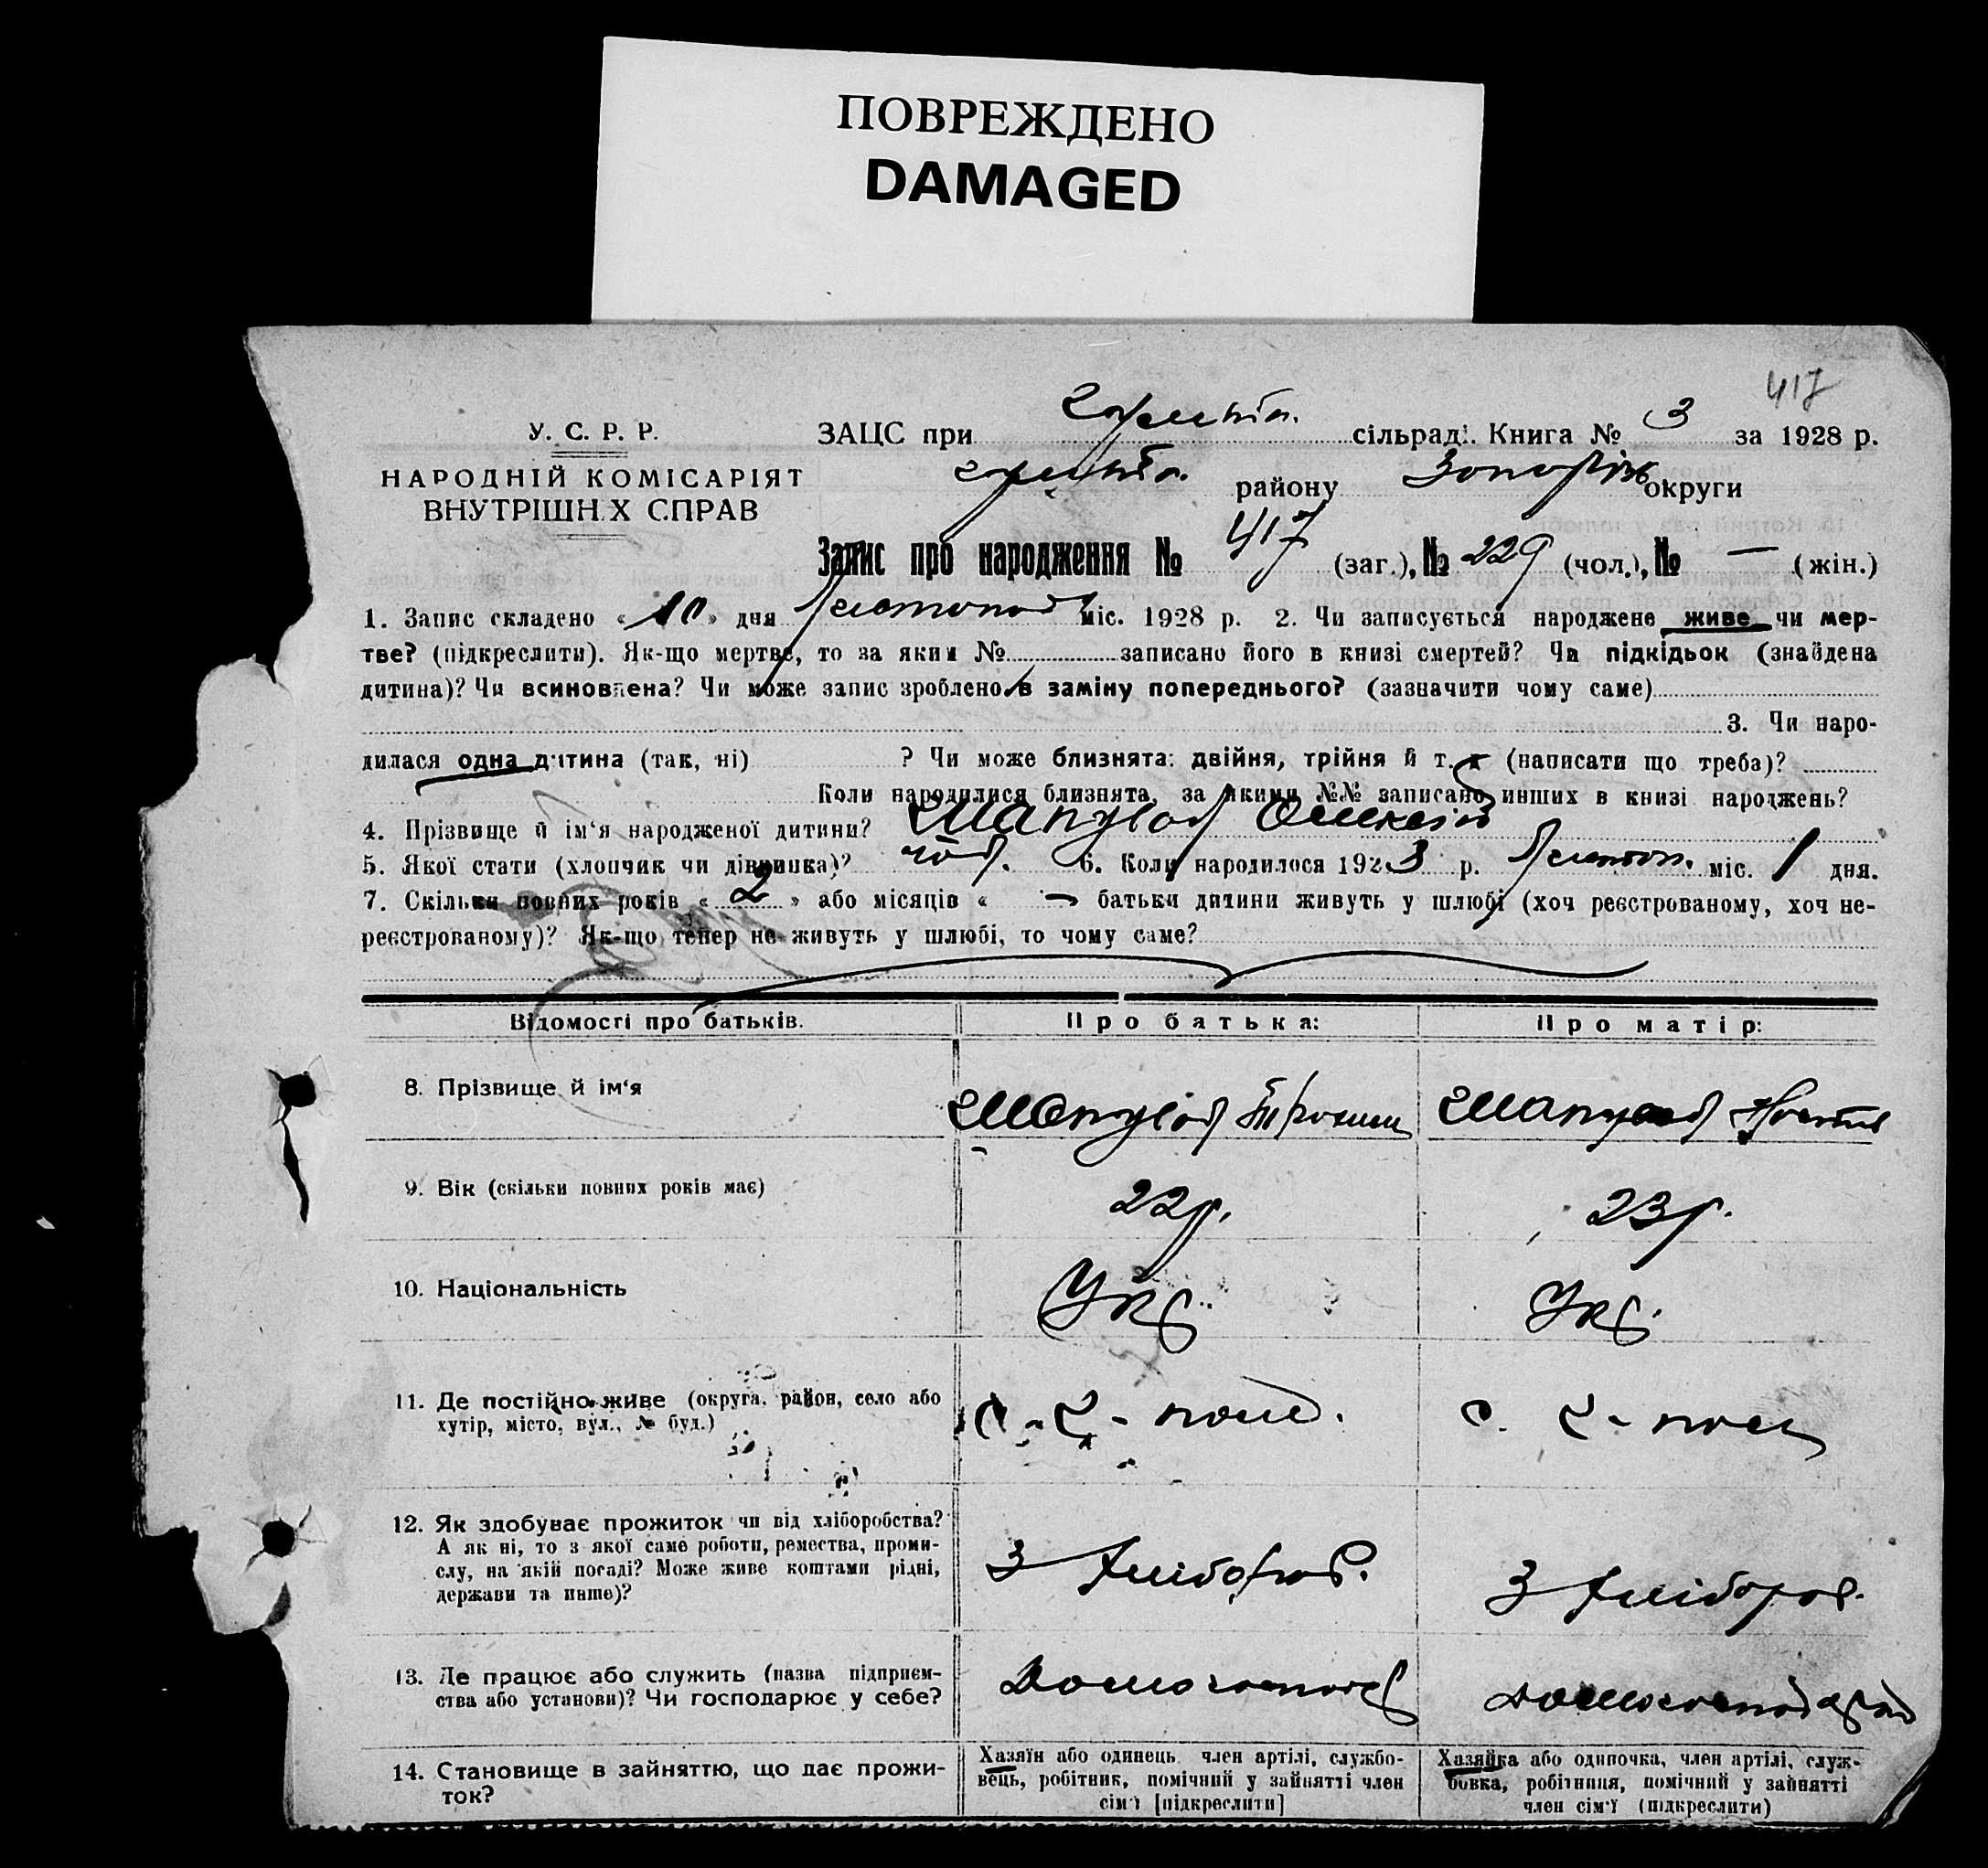 ПОВРЕЖДЕНО
DAMAGED
417
У. С. Р. Р.
ЗАЦС при сільрад. Книга № 3 за 1928 р.
НАРОДНІЙ КОМІСАРІЯТ
ВНУТРІШН.Х СПРАВ
району округи
Запис про народження № 417 (заг.), № 229 (чол.), № — (жін.)
1. Запис складено « 10 » дня листопад міс. 1928 р. 2. Чи записується народжене живе чи мер-
тве? (підкреслити). Як-що мертве, то за яким № записано його в книзі смертей? Чи підкідьок (знайдена
дитина)? Чи всиновлена? Чи може запис зроблено в заміну попереднього? (зазначити чому саме)
3. Чи наро-
дилася одна дитина (так, ні) ? Чи може близнята: двійня, трійня й т. д (написати що треба)?
Коли народилися близнята, за якими №№ записано инших в книзі народжень?
4. Прізвище й ім‘я народженої дитини? Шапувал Олексій
5. Якої стати (хлопчик чи дівчинка)? чол. 6. Коли народилося 1928 р. листоп. міс. 1 дня.
7. Скільки повних років « 2 » або місяців « — батьки дитини живуть у шлюбі (хоч реєстрованому, хоч не-
реєстрованому)? Як-що тепер не живуть у шлюбі, то чому саме?
Відомості про батьків.
Про батька:
Про матір:
8. Прізвище й ім‘я
Шапувал
Шапувал
9. Вік (скільки повних років має)
22р.
23р.
10. Національність
Укр.
Укр.
11. Де постійно живе (округа. район, село або
хутір, місто, вул., № буд.)
с. Г-поле.
с. Г-поле
12. Як здобуває прожиток чи від хліборобства?
А як ні, то з якої саме роботи, ремества, проми-
слу, на якій посаді? Може живе коштами рідні,
держави та инше)?
З хлібороб.
З хлібороб.
13. Де працює або служить (назва підприєм-
ства або установи)? Чи господарює у себе?
14. Становище в зайняттю, що дає прожи-
ток?
Хазяїн або одинець член артілі, службо-
вець, робітник, помічний у зайнятті член
сім‘ї [підкреслити]
Хазяйка або одиночка, член артілі, служ-
бовка, робітниця, помічний у зайнятті
член сім‘ї (підкреслити)